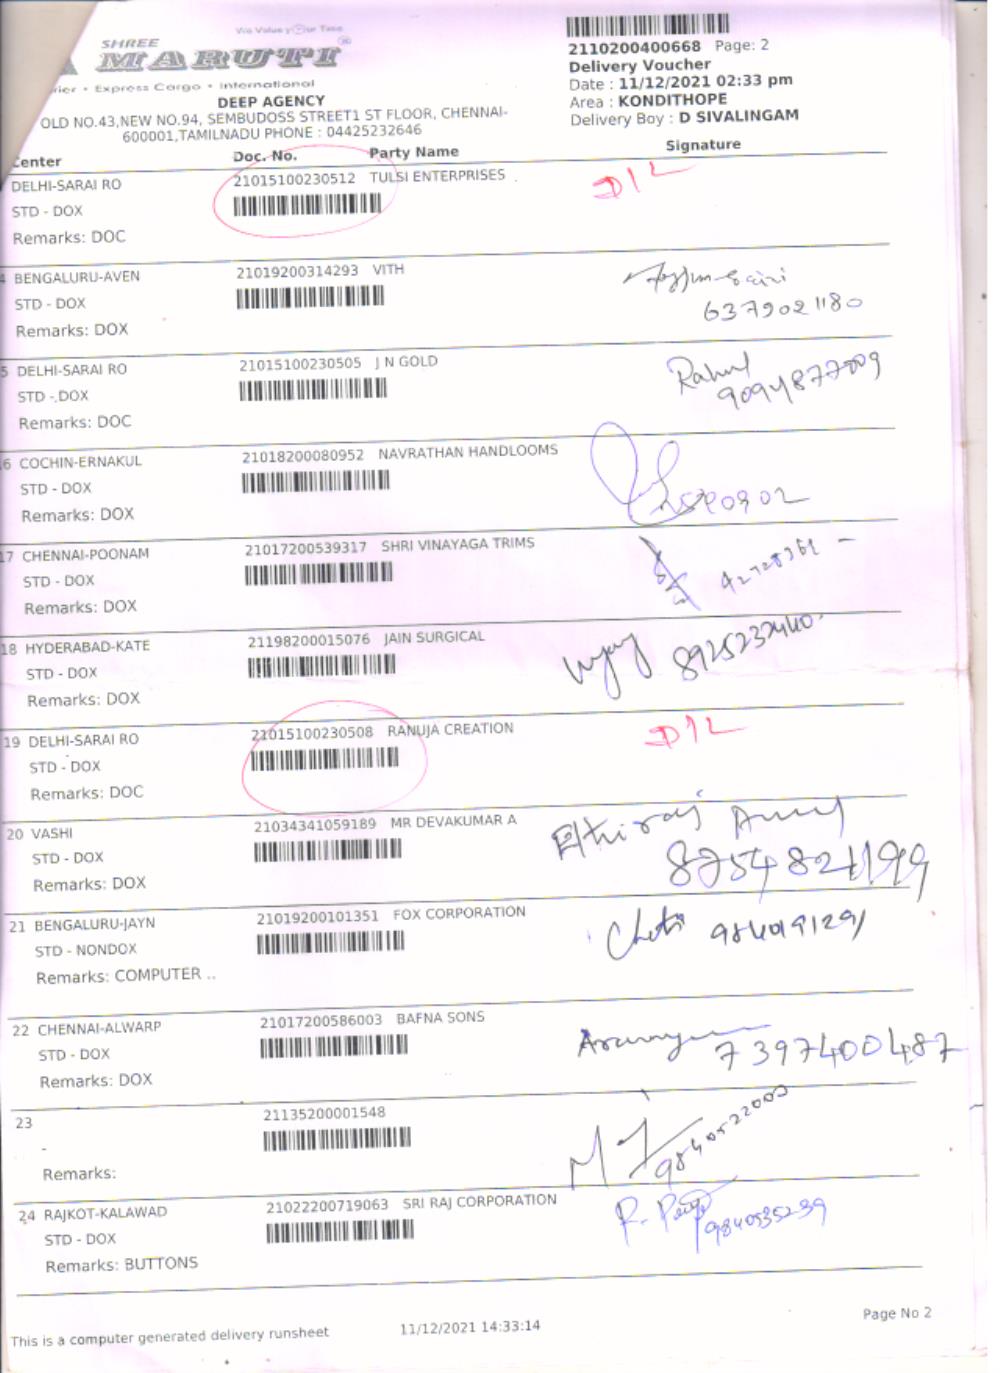 We Value your Time
SHREE
MARUTI
rier • Express Cargo • International
DEEP AGENCY
OLD NO.43,NEW NO.94, SEMBUDOSS STREET1 ST FLOOR, CHENNAI-
600001,TAMILNADU PHONE : 04425232646
2110200400668 Page: 2
Delivery Voucher
Date : 11/12/2021 02:33 pm
Area : KONDITHOPE
Delivery Boy : D SIVALINGAM
Center Doc. No. Party Name Signature
DELHI-SARAI RO 21015100230512 TULSI ENTERPRISES D/L
STD - DOX
Remarks: DOC
4 BENGALURU-AVEN 21019200314293 VITH
STD - DOX 6379021180
Remarks: DOX
5 DELHI-SARAI RO 21015100230505 J N GOLD Rahul
STD - DOX 9094877009
Remarks: DOC
6 COCHIN-ERNAKUL 21018200080952 NAVRATHAN HANDLOOMS
STD - DOX
Remarks: DOX
17 CHENNAI-POONAM 21017200539317 SHRI VINAYAGA TRIMS
STD - DOX
Remarks: DOX
18 HYDERABAD-KATE 21198200015076 JAIN SURGICAL
STD - DOX
Remarks: DOX
19 DELHI-SARAI RO 21015100230508 RANUJA CREATION D/L
STD - DOX
Remarks: DOC
20 VASHI 21034341059189 MR DEVAKUMAR A Ethiraj
STD - DOX 8254821199
Remarks: DOX
21 BENGALURU-JAYN 21019200101351 FOX CORPORATION
STD - NONDOX 9840191291
Remarks: COMPUTER ..
22 CHENNAI-ALWARP 21017200586003 BAFNA SONS
STD - DOX 7397400487
Remarks: DOX
23 21135200001548
-
Remarks: 9840522003
24 RAJKOT-KALAWAD 21022200719063 SRI RAJ CORPORATION
STD - DOX 9840535239
Remarks: BUTTONS
Page No 2
This is a computer generated delivery runsheet 11/12/2021 14:33:14